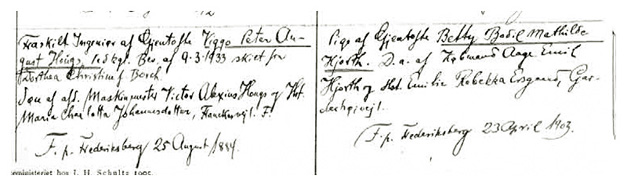 Fraskilt Ingeniør af Gjentofte Viggo Peter Au-
gust Høugs, ifølge kgl. Bev. af 9-3-1933 skilt fra
Dorthea Christine f. Borch.
Søn af afd. Maskinmester Victor Alexius Høugs og Hst.
Maria Charlotta Johannesdotter, F.
F. p. Frederiksberg 25 August 1884.
Pige af Gjentofte Betty Bodil Mathilde
Hjorth. D. a. af Købmand Aage Emil
Hjorth og Hst. Emilie Rebekka
F. p. Frederiksberg 23 April 1903.
ministeriet hos J. H. Schultz